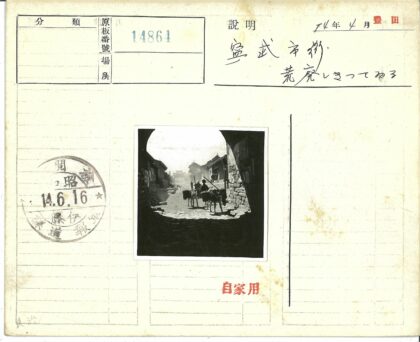 分類
原板番號
14864
場所
説明
14年4月
豊田
寧武市街
荒廃しきってゐる
昭
14.6.16
自家用